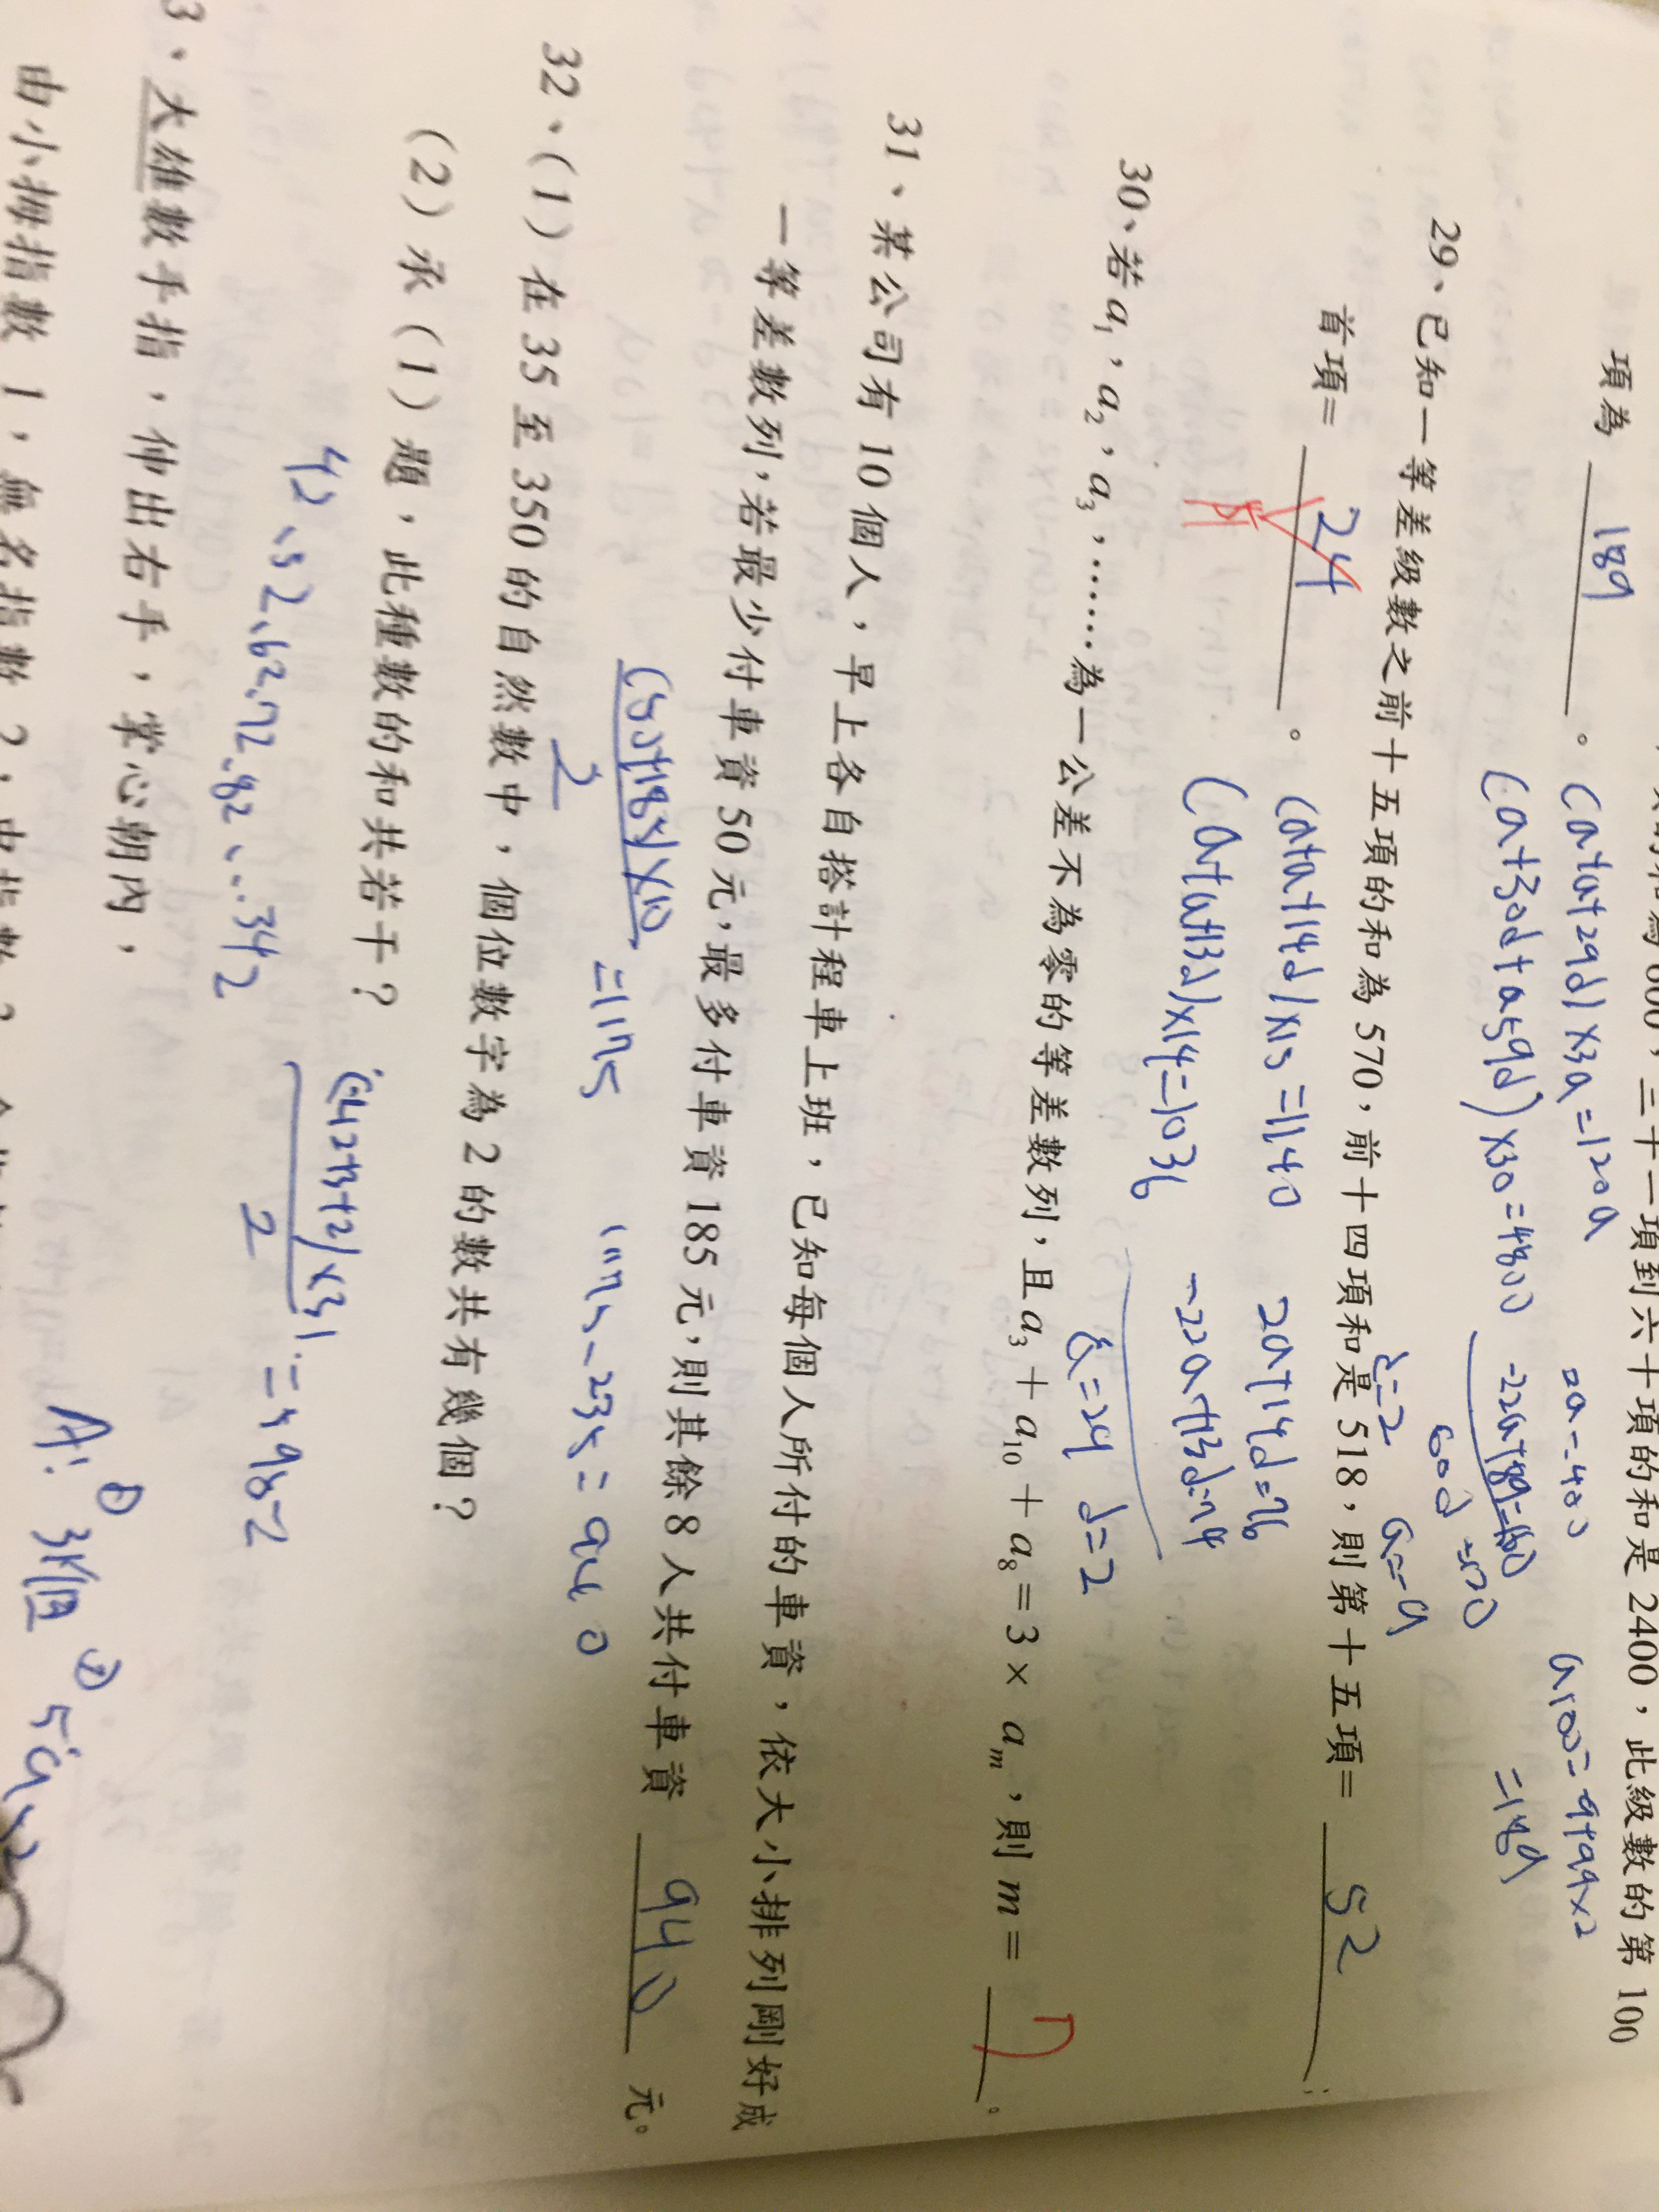 為600，三十一項到六十項的和是2400，此級數的第100
項為 189 。
(a+a+29d)×30=1200
2a=-400
a100=-9+99×2
=189
(a+30d+a+59d)×30=4800
-2a+89=160
60d=120
d=2 a=-9
29、已知一等差級數之前十五項的和為570，前十四項和是518，則第十五項= 52 ；
首項= 24 。
(a+a+14d)×15=1140
2a+14d=76
(a+a+13d)×14=1036
-2a+13d=74
a=24 d=2
30、若a₁，a₂，a₃，……為一公差不為零的等差數列，且a₃＋a₁₀＋a₈＝3× aₘ，則m＝ 7 。
31、某公司有10個人，早上各自搭計程車上班，已知每個人所付的車資，依大小排列剛好成
一等差數列，若最少付車資50元，最多付車資185元，則其餘8人共付車資 940 元。
(50+185)×10
2
=1175
1175-235=940
32、(1)在35至350的自然數中，個位數字為2的數共有幾個？
(2)承(1)題，此種數的和共若干？
42、52、62、72、82、…342
(42+342)×31
2
=5952
A:① 31個 ② 5952
3、大雄數手指，伸出右手，掌心朝內，
由小拇指數1，無名指數2，中指數3